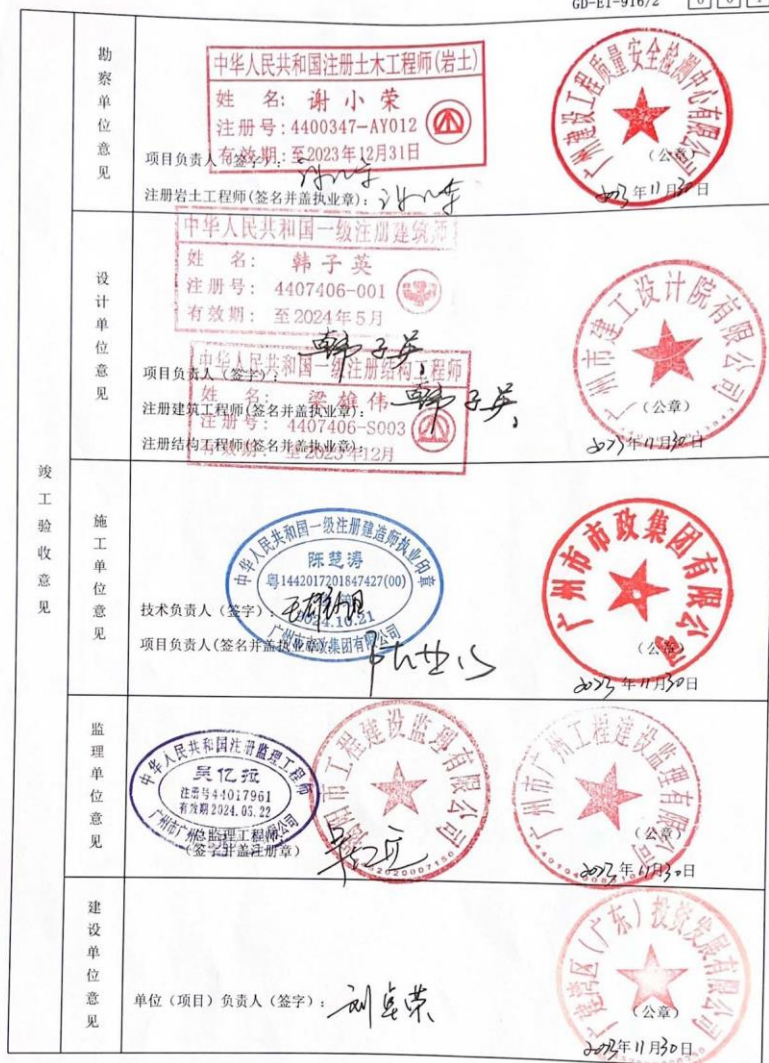 GD-E1-916/2 0 0 1
竣工验收意见
勘察单位意见
中华人民共和国注册土木工程师(岩土)
姓 名: 谢小荣
注册号:4400347-AY012
有效期:至2023年12月31日
项目负责人(签字):
注册岩土工程师(签名并盖执业章):
广州建设工程质量安全检测中心有限公司
(公章)
2023年11月30日
设计单位意见
中华人民共和国一级注册建筑师
姓 名: 韩子英
注册号: 4407406-001
有效期: 至2024年5月
项目负责人(签字): 韩子英
中华人民共和国一级注册结构工程师
姓 名: 梁雄伟
注册号: 4407406-S003
有效期: 至2023年12月
注册建筑工程师(签名并盖执业章): 韩子英
注册结构工程师(签名并盖执业章):
广州市建工设计院有限公司
(公章)
2023年11月30日
施工单位意见
中华人民共和国一级注册建造师执业印章
陈楚涛
粤1442017201847427(00)
2024.10.21
广州市市政集团有限公司
技术负责人(签字):
项目负责人(签名并盖执业章):
广州市市政集团有限公司
(公章)
2023年11月30日
监理单位意见
中华人民共和国注册监理工程师
吴亿拉
注册号44017961
有效期2024.05.22
总监理工程师
(签字并盖注册章)
市工程建设监理有限公司
广州市广州工程建设监理有限公司
(公章)
2023年11月30日
建设单位意见
单位(项目)负责人(签字):
广建湾区(广东)投资发展有限公司
(公章)
2023年11月30日